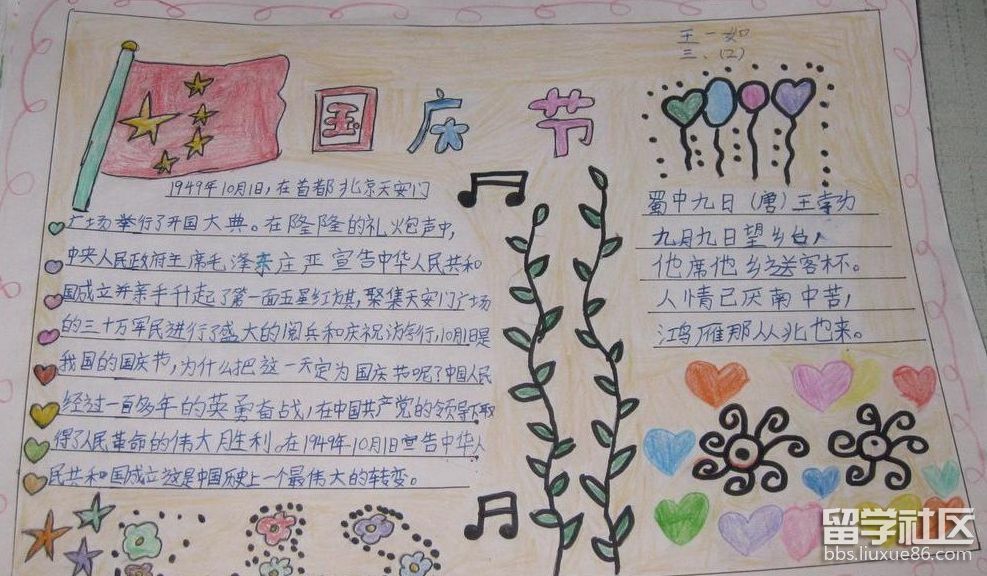 王一如
三、(2)
国庆节
1949年10月1日,在首都北京天安门
广场举行了开国大典。在隆隆的礼炮声中,
中央人民政府主席毛泽东庄严宣告中华人民共和
国成立并亲手升起了第一面五星红旗,聚集天安门广场
的三十万军民进行了盛大的阅兵和庆祝游行,10月1日是
我国的国庆节,为什么把这一天定为国庆节呢?中国人民
经过一百多年的英勇奋战,在中国共产党的领导下取
得了人民革命的伟大胜利。在1949年10月1日宣告中华人
民共和国成立这是中国历史上一个最伟大的转变。
蜀中九日(唐)王孛力
九月九日望乡台,
他席他乡送客杯。
人情已厌南中苦,
鸿雁那从北地来。
留学社区
bbs.liuxue86.com